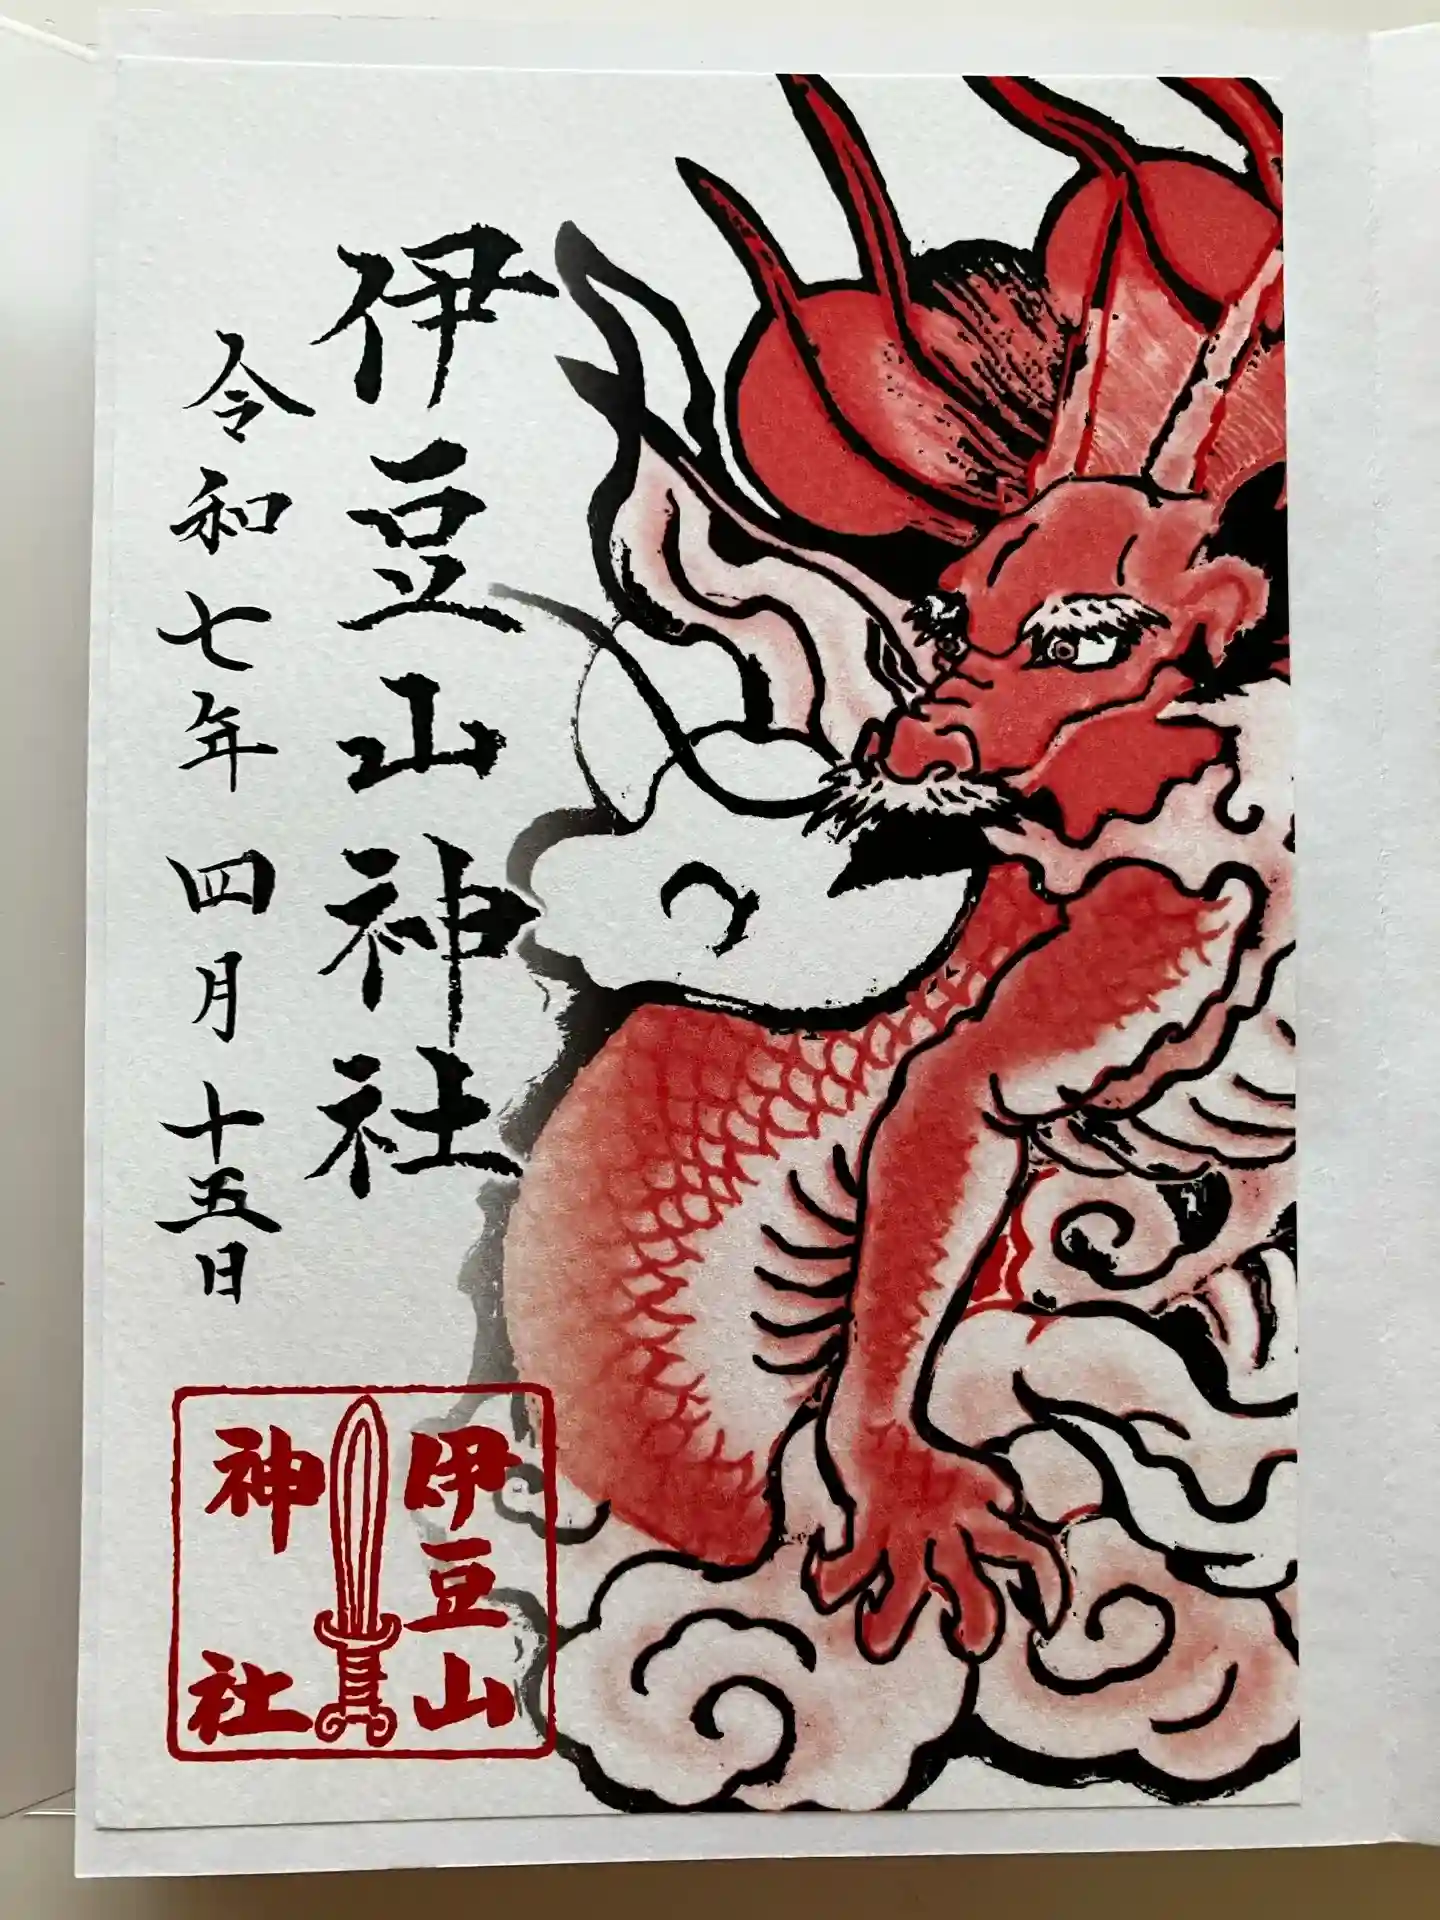 伊豆山神社
令和七年四月十五日
伊豆山
神社